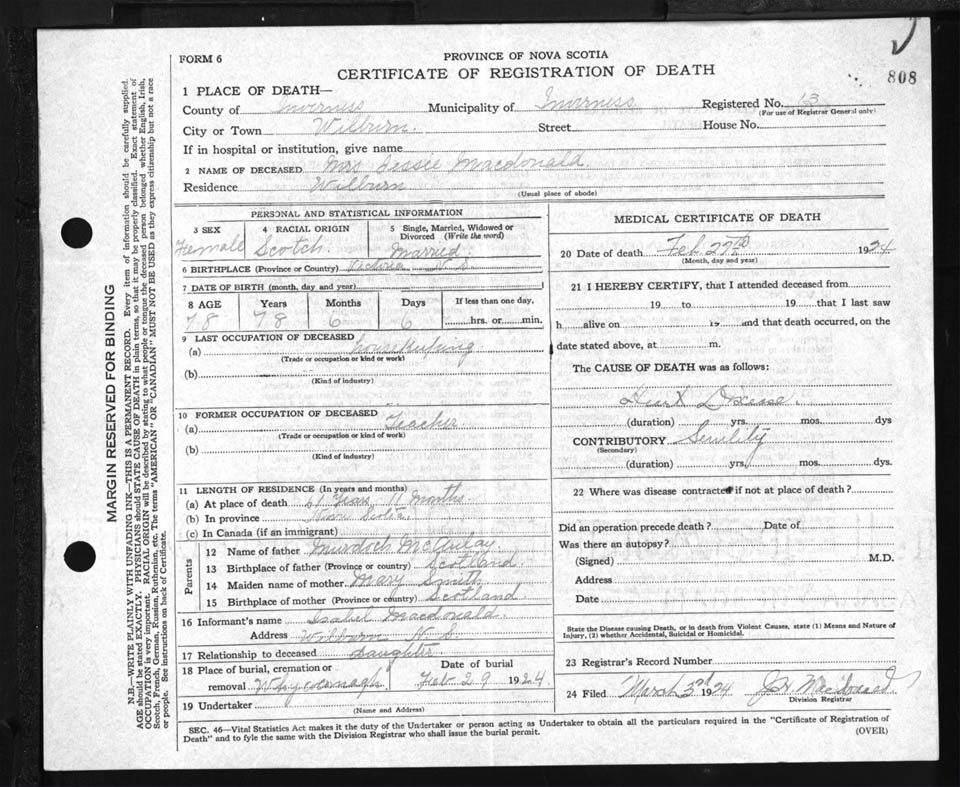 FORM 6
PROVINCE OF NOVA SCOTIA
CERTIFICATE OF REGISTRATION OF DEATH
808
1 PLACE OF DEATH—
County of Inverness Municipality of Inverness Registered No. 13
(For use of Registrar General only)
City or Town Wilburn. Street House No.
If in hospital or institution, give name
2 NAME OF DECEASED Mrs Jessie Macdonald
Residence Wilburn
(Usual place of abode)
PERSONAL AND STATISTICAL INFORMATION
3 SEX Female
4 RACIAL ORIGIN Scotch.
5 Single, Married, Widowed or Divorced (Write the word) Married
6 BIRTHPLACE (Province or Country) Victoria N.S.
7 DATE OF BIRTH (month, day and year)
8 AGE Years Months Days If less than one day,
78 78 6 6 hrs. or min.
9 LAST OCCUPATION OF DECEASED
(a) housekeeping
(Trade or occupation or kind or work)
(b)
(Kind of industry)
10 FORMER OCCUPATION OF DECEASED
(a) Teacher
(Trade or occupation or kind of work)
(b)
(Kind of industry)
11 LENGTH OF RESIDENCE (In years and months)
(a) At place of death 61 Years 11 Months
(b) In province Nova Scotia
(c) In Canada (if an immigrant)
Parents
12 Name of father Murdoch McAulay
13 Birthplace of father (Province or country) Scotland.
14 Maiden name of mother Mary Smith
15 Birthplace of mother (Province or country) Scotland
16 Informant's name Isabel Macdonald
Address Wilburn N S
17 Relationship to deceased Daughter
18 Place of burial, cremation or removal Whycocomagh Date of burial Feb 29 1924
19 Undertaker
(Name and Address)
MEDICAL CERTIFICATE OF DEATH
20 Date of death Feb. 27th 1924
(Month, day and year)
21 I HEREBY CERTIFY, that I attended deceased from
19 to 19 that I last saw
h alive on 19 and that death occurred, on the
date stated above, at m.
The CAUSE OF DEATH was as follows:
Heart Disease.
(duration) yrs. mos. days
CONTRIBUTORY Senility
(Secondary)
(duration) yrs, mos. dys.
22 Where was disease contracted if not at place of death?
Did an operation precede death? Date of
Was there an autopsy?
(Signed) M.D.
Address
Date
State the Disease causing Death, or in death from Violent Causes, state (1) Means and Nature of
Injury, (2) whether Accidental, Suicidal or Homicidal.
23 Registrar's Record Number
24 Filed March 3rd 1924 Macdonald
Division Registrar
SEC. 46—Vital Statistics Act makes it the duty of the Undertaker or person acting as Undertaker to obtain all the particulars required in the "Certificate of Registration of
Death" and to fyle the same with the Division Registrar who shall issue the burial permit.
(OVER)
MARGIN RESERVED FOR BINDING
N.B.—WRITE PLAINLY WITH UNFADING INK—THIS IS A PERMANENT RECORD. Every item of information should be carefully supplied.
AGE should be stated EXACTLY. PHYSICIANS should STATE CAUSE OF DEATH in plain terms, so that it may be properly classified. Exact statement of
OCCUPATION is very important. RACIAL ORIGIN will be described by stating to what people or tongue the deceased person belonged whether English, Irish,
Scotch, French, German, Russian, Ruthenian, etc. The terms "AMERICAN" OR "CANADIAN" MUST NOT BE USED as they express citizenship but not a race
or people. See instructions on back of Certificate.